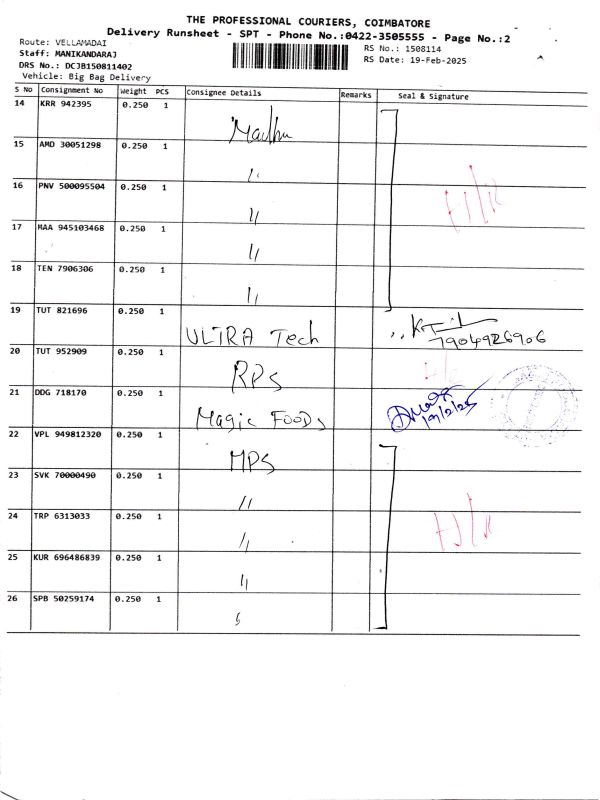 THE PROFESSIONAL COURIERS, COIMBATORE
Delivery Runsheet - SPT - Phone No.:0422-3505555 - Page No.:2
Route: VELLAMADAI
Staff: MANIKANDARAJ
DRS No.: DCJB150811402
Vehicle: Big Bag Delivery
RS No.: 1508114
RS Date: 19-Feb-2025
S No Consignment No Weight PCS Consignee Details Remarks Seal & Signature
14 KRR 942395 0.250 1 Madhu
15 AMD 30051298 0.250 1 "
16 PNV 500095504 0.250 1 "
17 MAA 945103468 0.250 1 "
18 TEN 7906306 0.250 1 "
19 TUT 821696 0.250 1 ULTRA Tech 7904926906
20 TUT 952909 0.250 1 RPS
21 DDG 718170 0.250 1 Magic FOODS 19/2/25
22 VPL 949812320 0.250 1 MPS
23 SVK 70000490 0.250 1 "
24 TRP 6313033 0.250 1 "
25 KUR 696486839 0.250 1 "
26 SPB 50259174 0.250 1